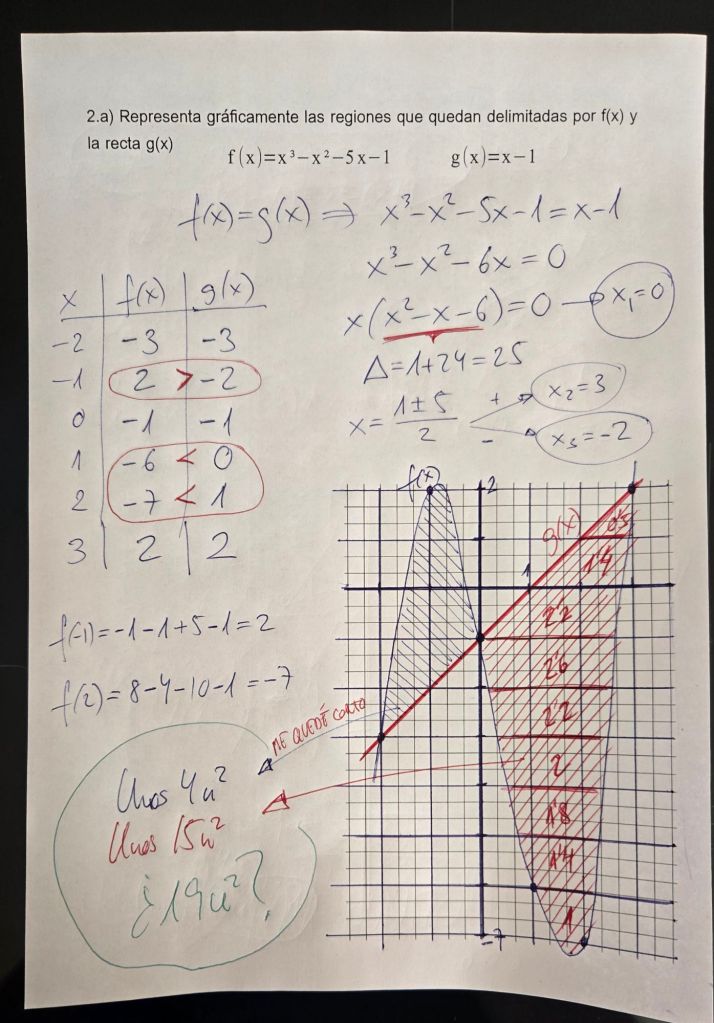 2.a) Representa gráficamente las regiones que quedan delimitadas por f(x) y
la recta g(x)
f(x)=x³−x²−5x−1 g(x)=x−1
f(x)=g(x) ⇒ x³−x²−5x−1=x−1
x³−x²−6x=0
x(x²−x−6)=0 → x₁=0
Δ=1+24=25
x= (1±5)/2
+ → x₂=3
− → x₃=−2
x f(x) g(x)
−2 −3 −3
−1 2 > −2
0 −1 −1
1 −6 < 0
2 −7 < 1
3 2 2
f(−1)=−1−1+5−1=2
f(2)=8−4−10−1=−7
f(x)
2
g(x)
1
0'5
1'4
2'2
2'6
2'2
2
1'8
1'4
1
−7
ME QUEDÉ CORTO
Unos 4u²
Unos 15u²
¿19u²?